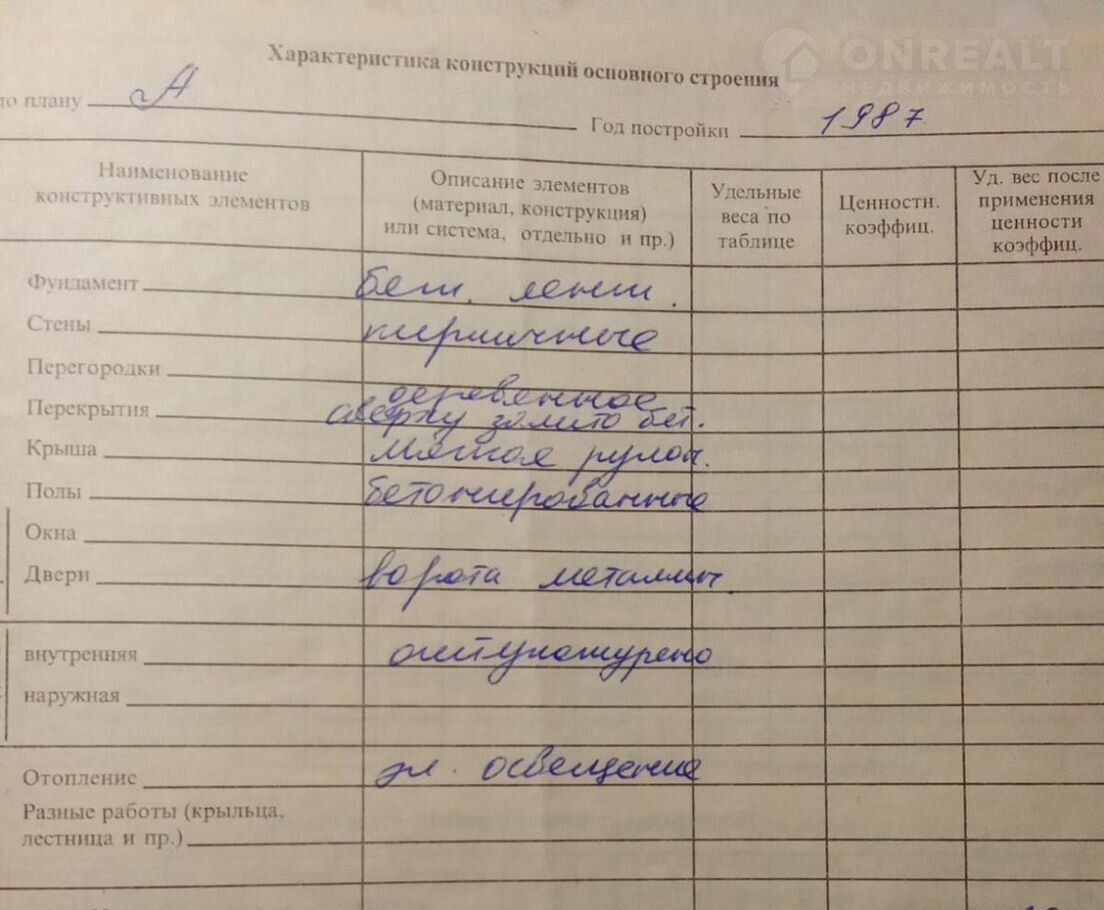 ONREALT
НЕДВИЖИМОСТЬ
Характеристика конструкций основного строения
по плану А
Год постройки 1987
Наименование конструктивных элементов
Описание элементов (материал, конструкция) или система, отдельно и пр.)
Удельные веса по таблице
Ценностн. коэффиц.
Уд. вес после применения ценности коэффиц.
Фундамент бет. лент.
Стены кирпичные
Перегородки
деревянное
Перекрытия сверху залито бет.
Крыша мягкая рулон.
Полы бетонированные
Окна
Двери ворота металлич.
внутренняя оштукатурено
наружная
Отопление эл. освещение
Разные работы (крыльца,
лестница и пр.)